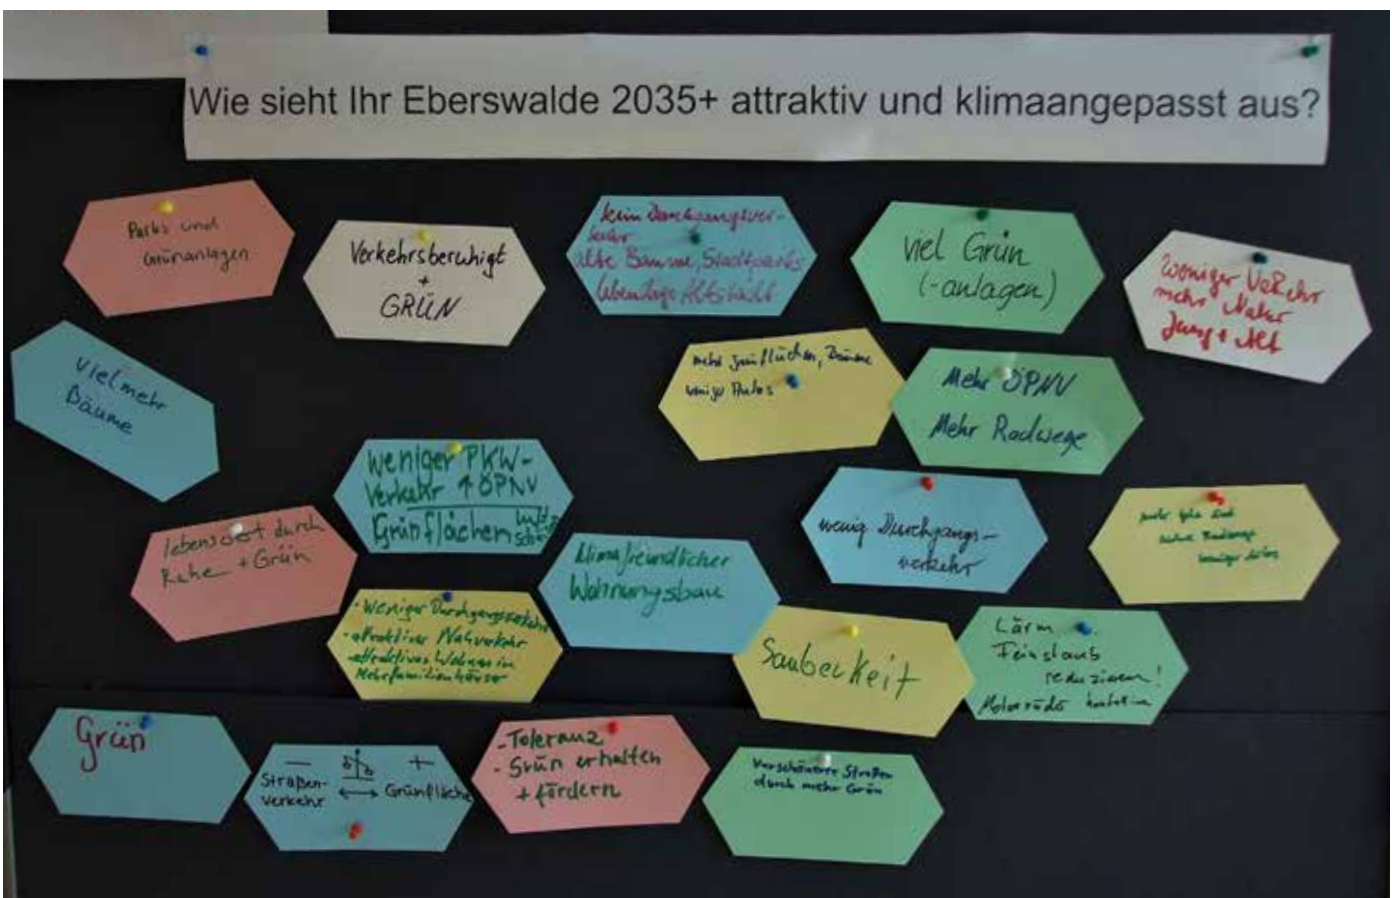 Wie sieht Ihr Eberswalde 2035+ attraktiv und klimaangepasst aus?
Parks und
Grünanlagen
Verkehrsberuhigt
+
GRÜN
kein Durchgangsver-
kehr
alte Bäume, Stadtparks
lebendige Altstadt
viel Grün
(-anlagen)
weniger Verkehr
mehr Natur
Jung + Alt
viel mehr
Bäume
mehr Grünflächen, Bäume
wenige Autos
Mehr ÖPNV
Mehr Radwege
weniger PKW-
Verkehr ↑ ÖPNV
Grünflächen
wenig Durchgangs-
verkehr
mehr
Radwege
weniger
lebenswert durch
Ruhe + Grün
klimafreundlicher
Wohnungsbau
· weniger Durchgangsverkehr
· attraktiver Nahverkehr
· attraktives Wohnen in
Mehrfamilienhäuser
Sauberkeit
Lärm
Feinstaub
reduzieren!
Motorräder
Grün
− +
Straßen-
verkehr ↔ Grünfläche
- Toleranz
- Grün erhalten
+ fördern
Verschönerer Straßen
durch mehr Grün